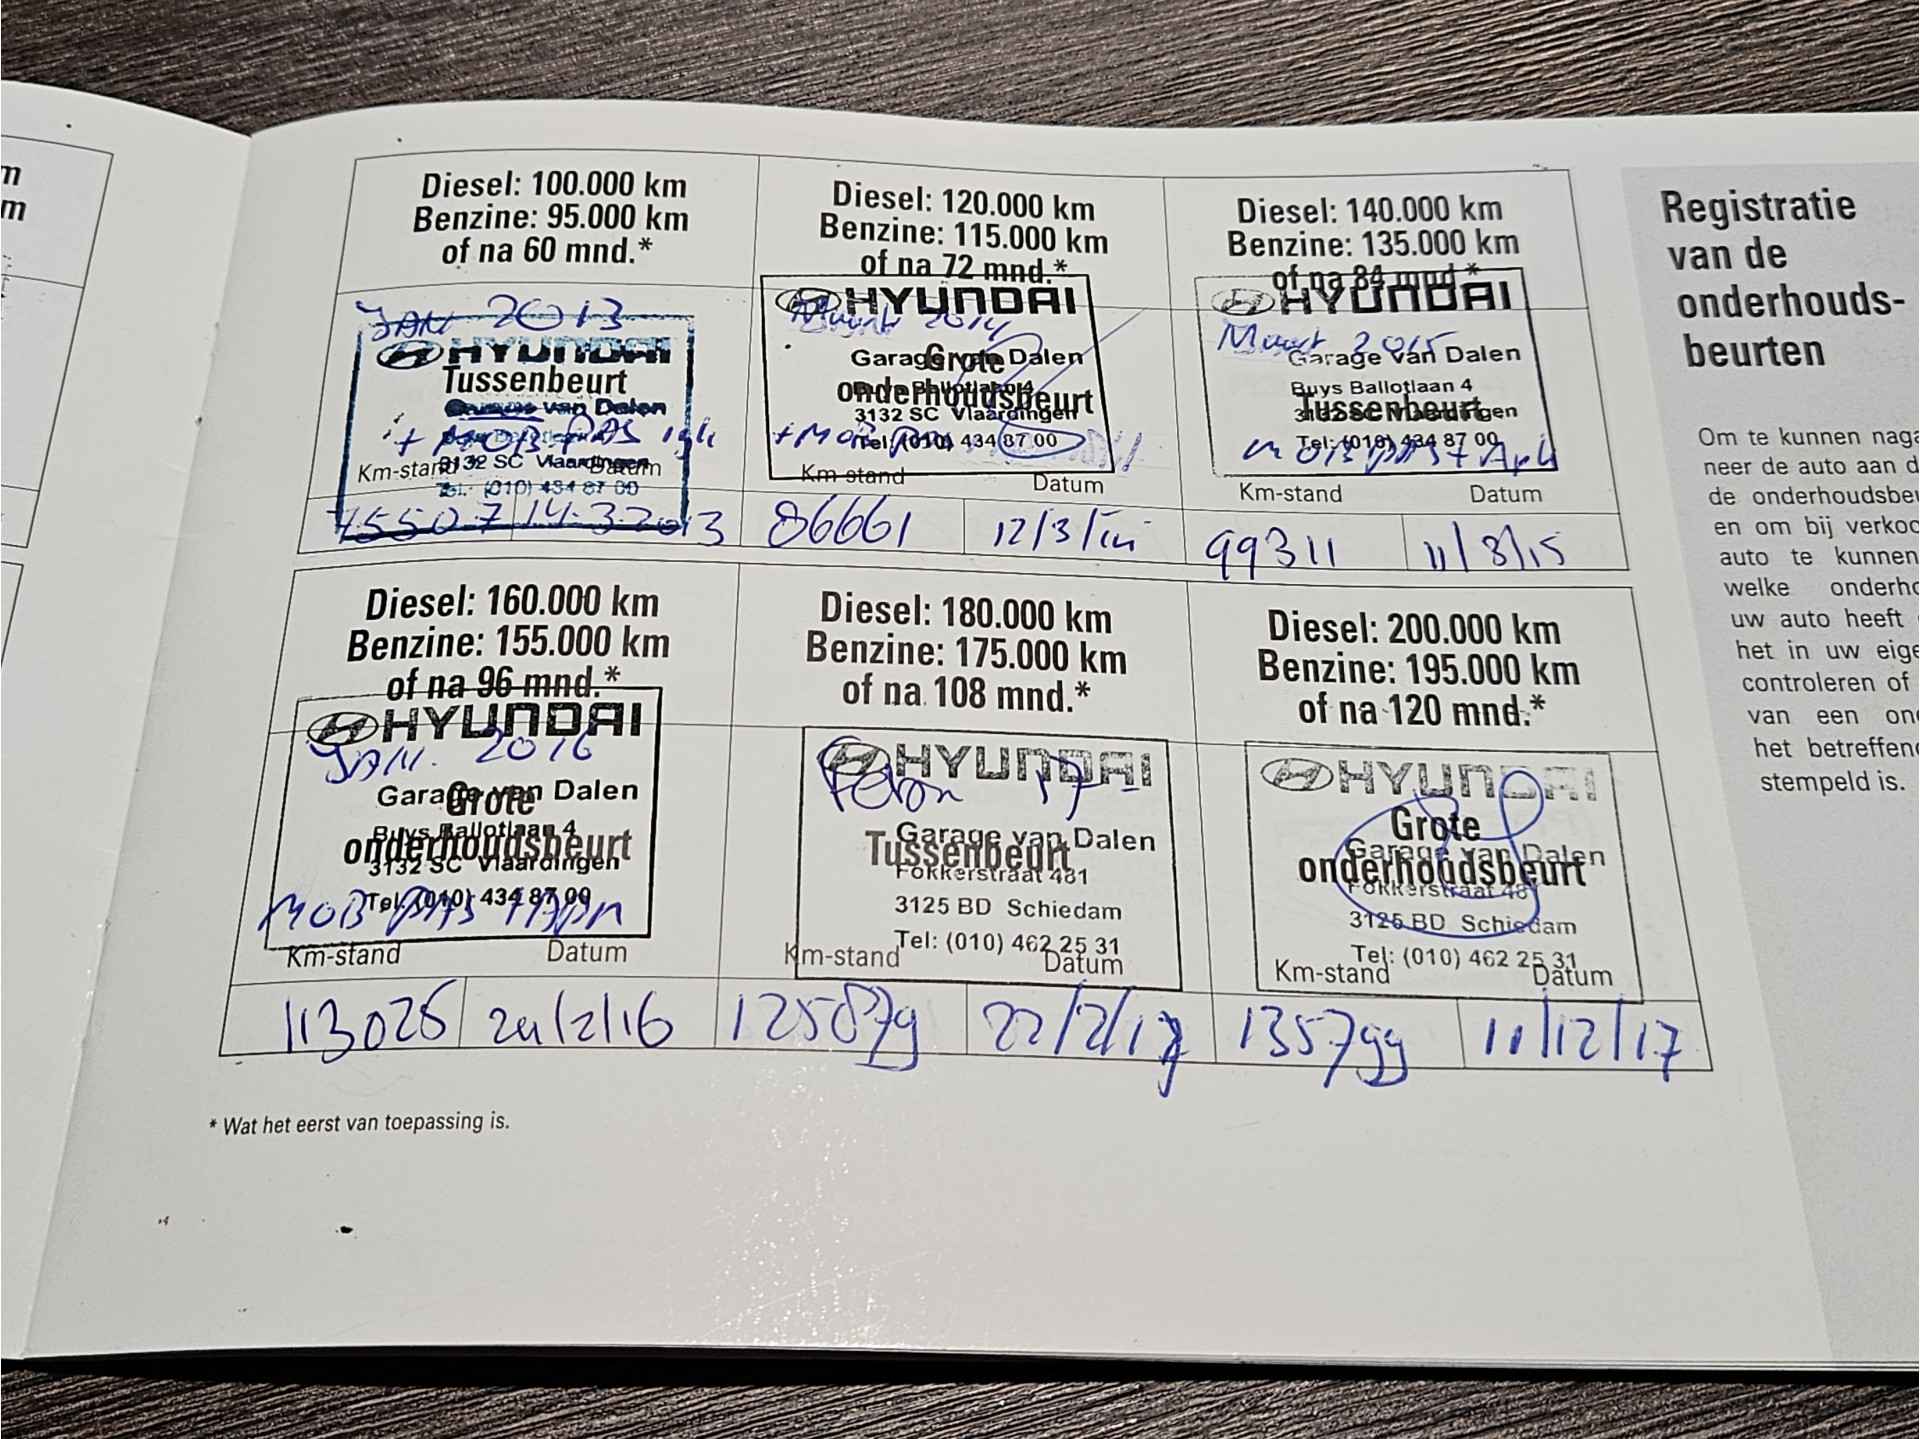 m
m
Diesel: 100.000 km
Benzine: 95.000 km
of na 60 mnd.*
JAN 2013
HYUNDAI
Tussenbeurt
van Dalen
+ MOB. PAS
3132 SC Vlaardingen
Km-stand Datum
Tel.: (010) 434 87 00
75507 14-3-2013
Diesel: 120.000 km
Benzine: 115.000 km
of na 72 mnd.*
HYUNDAI
Maart 2014
Garage van Dalen
Grote
Buys Ballotlaan 4
onderhoudsbeurt
3132 SC Vlaardingen
Tel: (010) 434 87 00
Km-stand Datum
86661 12/3/
Diesel: 140.000 km
Benzine: 135.000 km
of na 84 mnd.*
HYUNDAI
Maart 2015
Garage van Dalen
Buys Ballotlaan 4
Tussenbeurt
3132 SC Vlaardingen
Tel: (010) 434 87 00
Km-stand Datum
99311 11/3/15
Diesel: 160.000 km
Benzine: 155.000 km
of na 96 mnd.*
HYUNDAI
JAN. 2016
Garage van Dalen
Grote
Buys Ballotlaan 4
onderhoudsbeurt
3132 SC Vlaardingen
Tel: (010) 434 87 00
MOB. PAS
Km-stand Datum
113026 /2/16
Diesel: 180.000 km
Benzine: 175.000 km
of na 108 mnd.*
HYUNDAI
17
Garage van Dalen
Tussenbeurt
Fokkerstraat 481
3125 BD Schiedam
Tel: (010) 462 25 31
Km-stand Datum
125879 22/2/17
Diesel: 200.000 km
Benzine: 195.000 km
of na 120 mnd.*
HYUNDAI
Grote
Garage van Dalen
onderhoudsbeurt
Fokkerstraat 481
3125 BD Schiedam
Tel: (010) 462 25 31
Km-stand Datum
135799 11/12/17
* Wat het eerst van toepassing is.
Registratie
van de
onderhouds-
beurten
Om te kunnen naga
neer de auto aan d
de onderhoudsbeu
en om bij verkoo
auto te kunnen
welke onderho
uw auto heeft
het in uw eige
controleren of
van een ond
het betreffend
stempeld is.